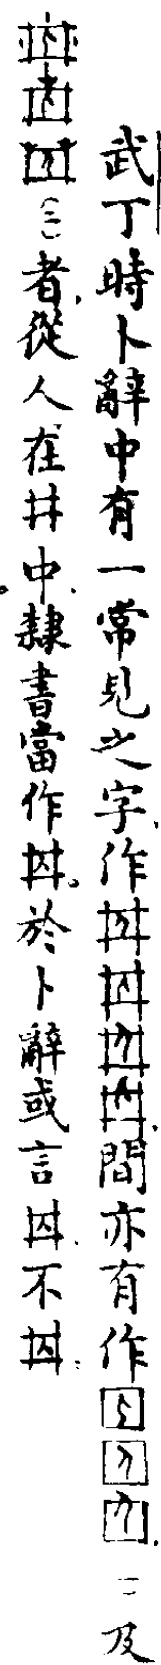 武丁時卜辭中有一常見之字，作、間亦有作。㈡及
㈢者，從人在井中，隸書當作。於卜辭或言不